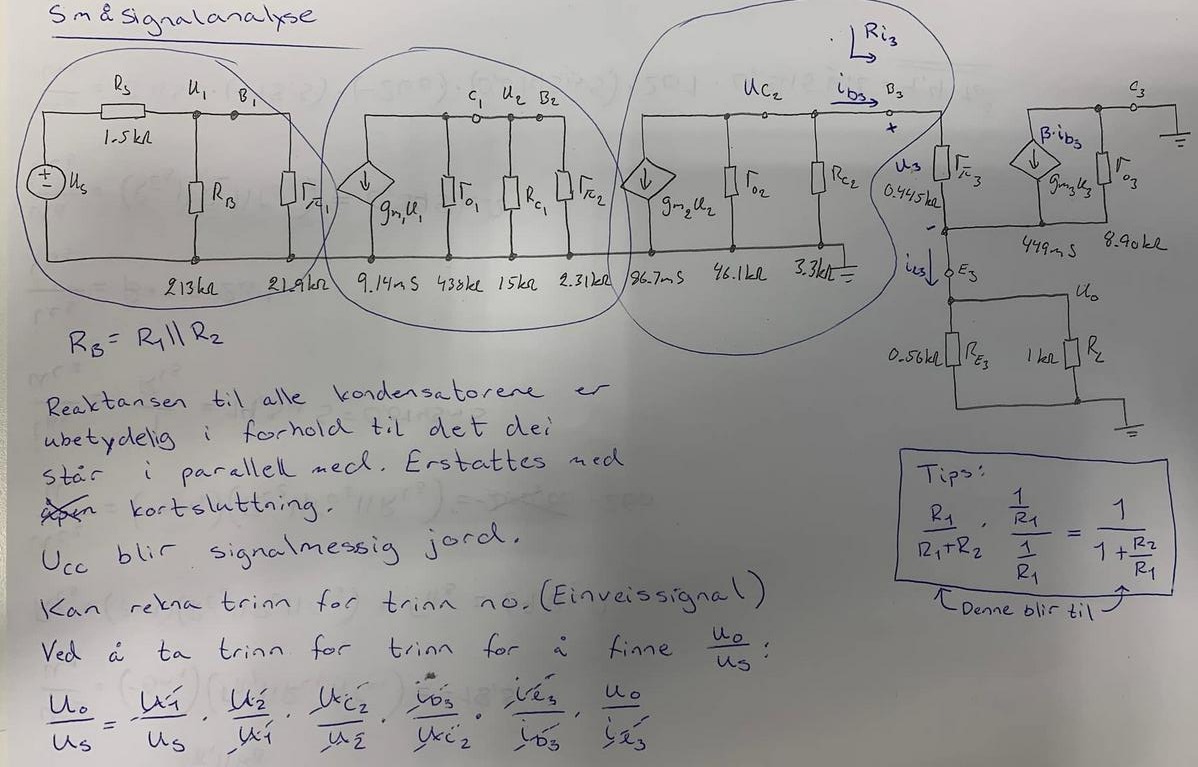 Småsignalanalyse
Rs
1.5kΩ
U1
B1
Us
RB
rπ1
213kΩ
21.9kΩ
C1
U2
B2
gm1U1
ro1
RC1
rπ2
9.14mS
438kΩ
15kΩ
2.31kΩ
UC2
gm2U2
ro2
RC2
86.7mS
46.1kΩ
3.3kΩ
Ri3
ib3
B3
+
U3
0.445kΩ
rπ3
-
ie3
E3
C3
β·ib3
gm3U3
ro3
449mS
8.90kΩ
Uo
0.56kΩ
RE3
1kΩ
RL
RB = R1||R2
Reaktansen til alle kondensatorene er
ubetydelig i forhold til det dei
står i parallell med. Erstattes med
kortsluttning.
Ucc blir signalmessig jord.
Kan rekna trinn for trinn no. (Einveissignal)
Ved å ta trinn for trinn for å finne uo/us :
uo/us = u1/us · u2/u1 · uc2/u2 · ib3/uc2 · ie3/ib3 · uo/ie3
Tips:
R1/(R1+R2) · (1/R1)/(1/R1) = 1/(1+R2/R1)
Denne blir til